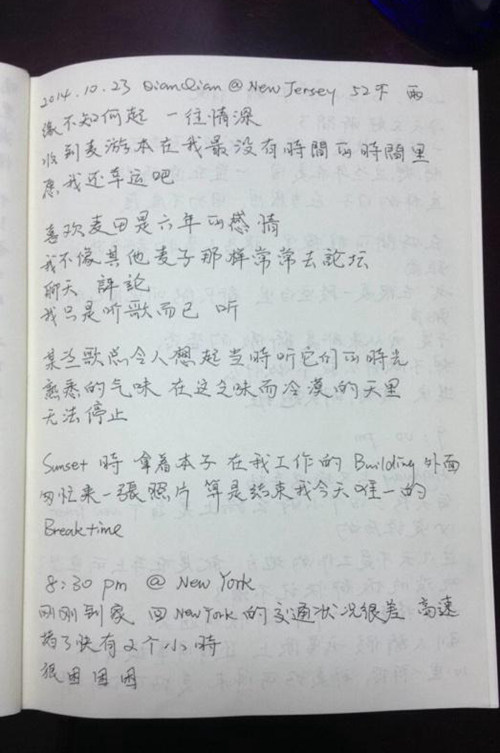 2014.10.23 QianQian @ New Jersey 52°F 雨
缘不知何起 一往情深
收到麦游本在我最没有時間的時間里
愿我还幸运吧
喜欢麦田是六年的感情
我不像其他麦子那样常常去論坛
聊天 評論
我只是听歌而已 听
某些歌总令人想起当時听它们的時光
熟悉的气味 在这乏味而冷漠的天里
无法停止
Sunset 時 拿着本子 在我工作的 Building 外面
匆忙来一張照片 算是结束我今天唯一的
Breaktime
8:30 pm @ New York
刚刚到家 回 New York 的交通状况很差 高速
堵了快有2个小時
很困困困